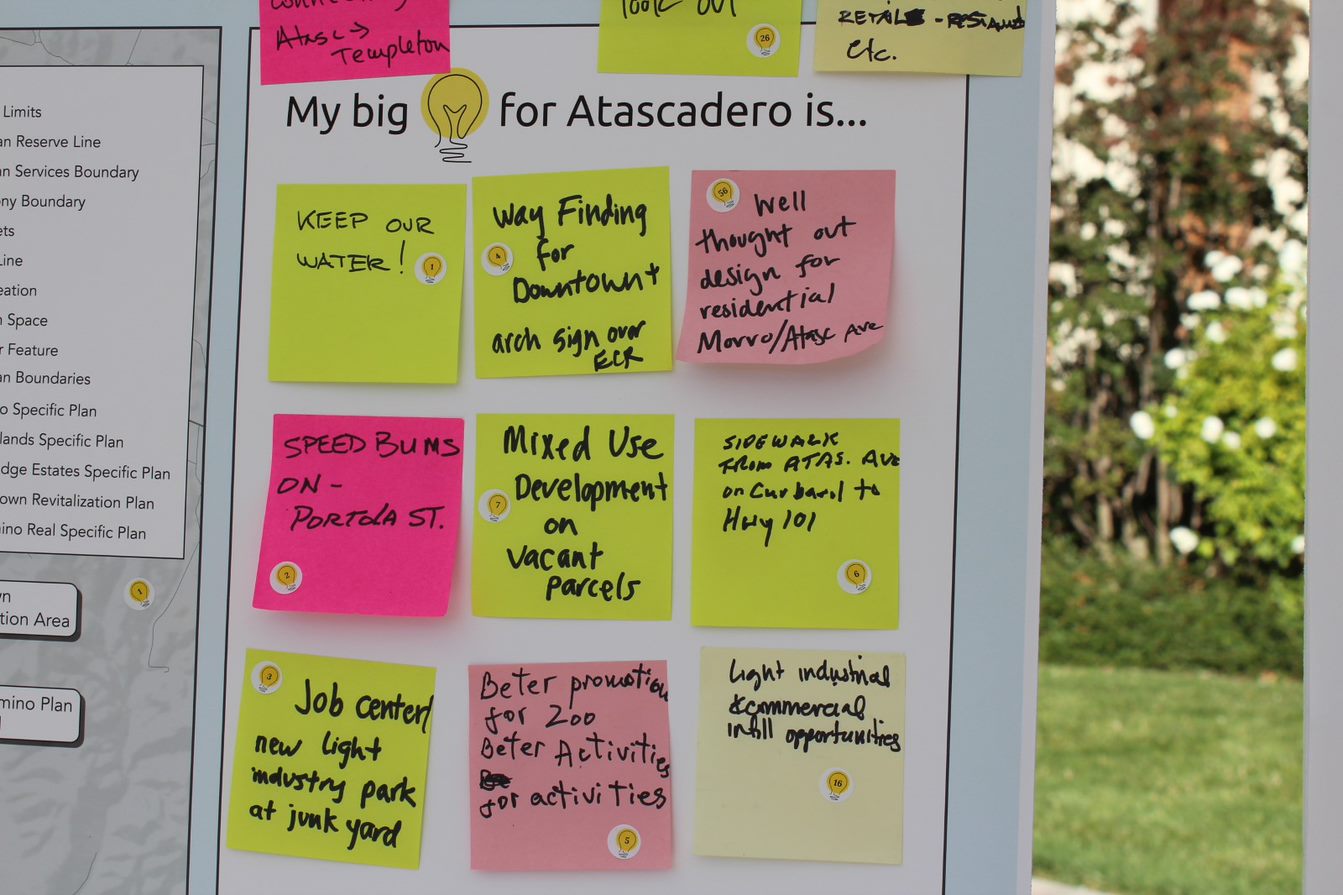 Atasc→
Templeton
look out
26
RETAIL
Etc.
My big
for Atascadero is...
KEEP OUR
WATER!
1
Way Finding
for
Downtown +
arch sign over
ECR
4
56
Well
thought out
design for
residential
Morro/Atasc Ave
SPEED BUMS
ON -
PORTOLA ST.
2
Mixed Use
Development
on
vacant
parcels
7
SIDEWALK
FROM ATAS. AVE
on Curbaril to
Hwy 101
6
3
Job center/
new light
industry park
at junk yard
Beter promotion
for Zoo
Beter Activities
for activities
5
Light industrial
& commercial
infill opportunities
16
Limits
an Reserve Line
an Services Boundary
ony Boundary
ets
Line
eation
n Space
r Feature
an Boundaries
o Specific Plan
lands Specific Plan
dge Estates Specific Plan
own Revitalization Plan
nino Real Specific Plan
1
vn
tion Area
mino Plan